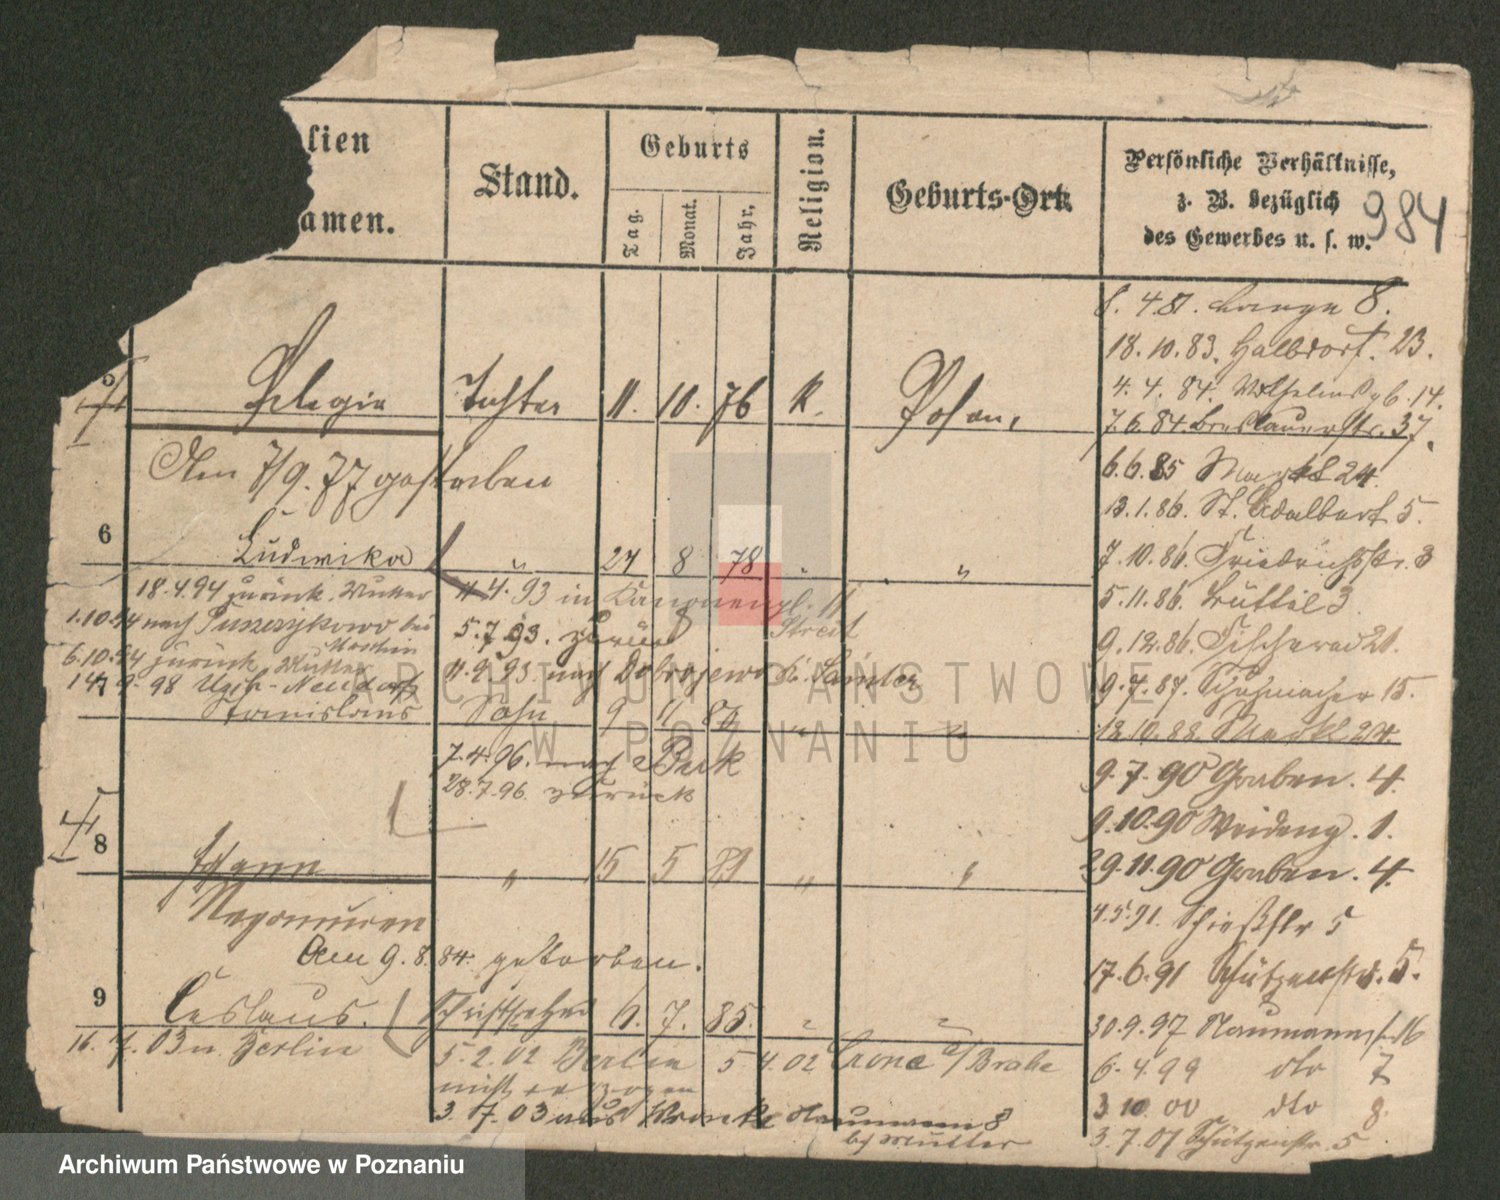 lien
amen.
Stand.
Geburts
Tag.
Monat.
Jahr,
Religion.
Geburts-Ort.
Persönliche Verhältnisse,
z. B. bezüglich
des Gewerbes u. s. w.
984
8. 4. 81. Lange 8.
18. 10. 83. Halbdorf. 23.
4. 4. 84. Wilhelms 14.
7. 6. 84. Breslauerstr. 37.
6. 6. 85 Markt 24.
13. 1. 86. St. Adalbert 5.
7. 10. 86. Friedrichstr. 3
5. 11. 86. Büttel 3
9. 12. 86. Fischerei 21.
9. 7. 87. Schuhmacher 15.
12. 10. 88. Markt 24.
9. 7. 90 Graben. 4.
9. 10. 90 Weideng. 1.
29. 11. 90 Graben. 4.
4. 5. 91. Schießstr 5
17. 6. 91 Schützenstr. 5.
30. 9. 97 Naumannstr. 16
6. 4. 99 dto 7
3 10. 00 dto 8.
3. 7. 01 Schützenstr. 5
5
Pelagia Tochter 11. 10. 76 K. Posen,
Am 7/9. 77 gestorben
6 Ludwika " 24 8 78 " "
18. 4. 94 zurück. Mutter
1. 10. 94 nach
6. 10. 94 zurück Mutter
14. 9. 98
11. 4. 93 in Kanonenpl. 11
5. 7. 93. zurück
11. 9. 93. nach Dobrojewo Kr. Samter
7 Stanislaus Sohn 9 11 80 " "
7. 4. 96. nach Buk
28. 7. 96. zurück
8 Johann " 15 5 81 " "
Nepomucen
Am 9. 8. 84. gestorben.
9 Ceslaus. Schriftsetzer 6. 7. 85. " "
16. 7. 03 n. Berlin
5. 2. 02 Berlin 5 4. 02 Crone a/Brahe
nicht
3. 7. 03 aus Wronke Naumann 8
bj Mutter
ARCHIWUM PAŃSTWOWE
W POZNANIU
Archiwum Państwowe w Poznaniu